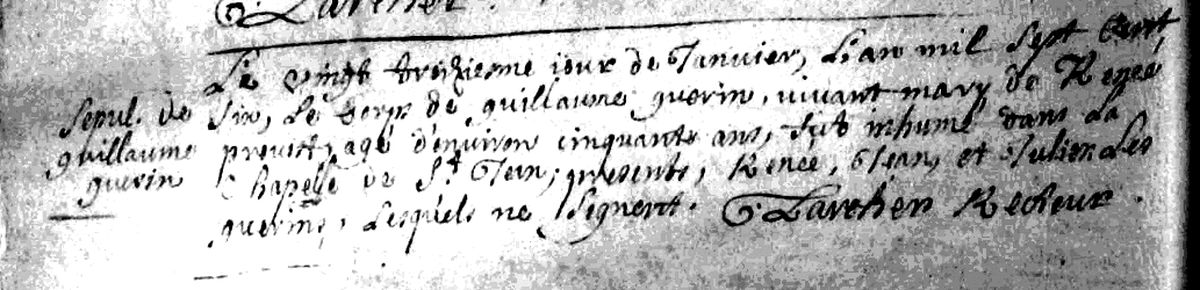 G. Larcher
Le vingt troiziesme iour de Janvier, L'an mil sept Cent
Sepul. de
six, Le Corps de guillaume guerin, vivant mary de Renee
guillaume
provost, agé d'environ cinquante ans, fut inhumé dans La
guerin
Chapelle de St. Jean, presents, Renée, Jean, et Julien Les
guerins, Lesquels ne signent. G. Larcher Recteur.